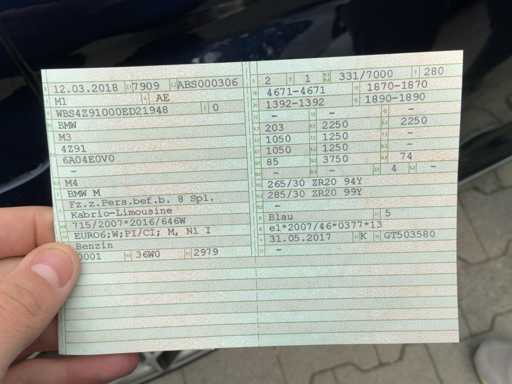 12.03.2018 7909 ABS000306
M1 AE
WBS4Z91000ED21948 0
BMW
M3
4Z91
6A04E0V0
—
M4
BMW M
Fz.z.Pers.bef.b. 8 Spl.
Kabrio-Limousine
715/2007*2016/646W
EURO6;W;PI/CI; M, N1 I
Benzin
0001 36W0 2979
2 1 331/7000 280
4671-4671 1870-1870
1392-1392 1890-1890
— —
203 2250 2250
1050 1250 —
1050 1250 —
85 3750 74
— — 4 —
265/30 ZR20 94Y
285/30 ZR20 99Y
—
Blau 5
e1*2007/46*0377*13
31.05.2017 K GT503580
—